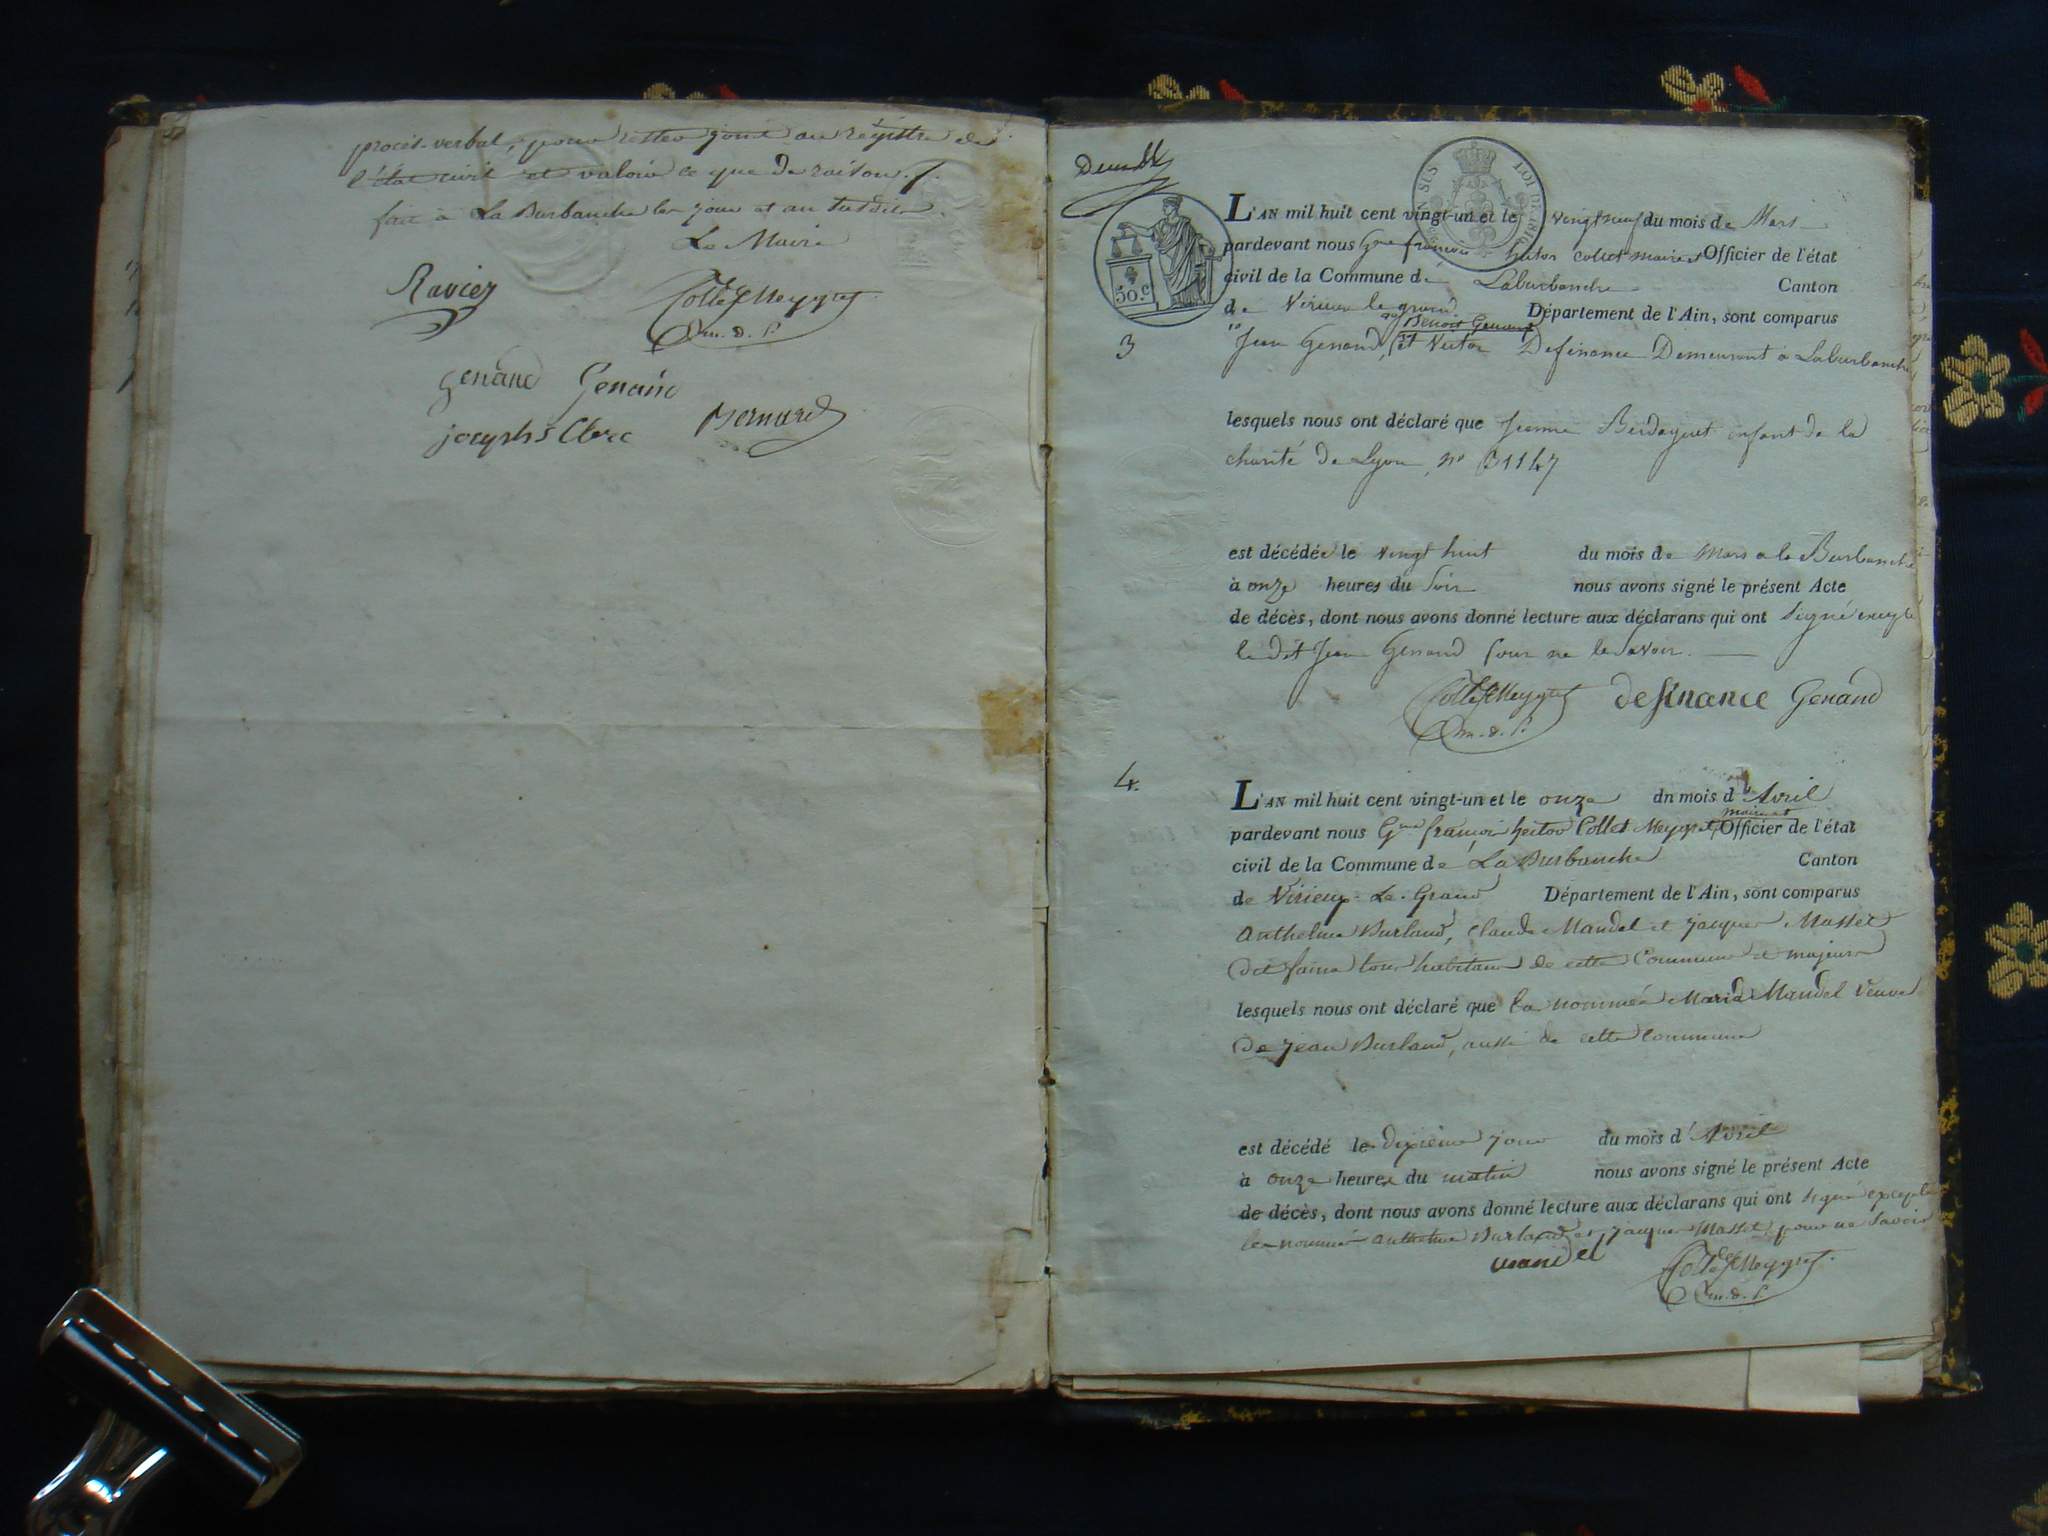 procès-verbal, pour rester joint au régistre de
l'état civil et valoir ce que de raison./.
fait à La Burbanche les jour et an susdits.
Le Maire
Ravier
Collet Meygret
m.d.S.
Genand Genand
joseph Clerc Bernard
SUS LOI DE 1816
50.c
L'AN mil huit cent vingt-un et le vingt neuf du mois de Mars
pardevant nous Gme françois hector collet maire et Officier de l'état
civil de la Commune de Laburbanche Canton
de Virieu le grand Département de l'Ain, sont comparus
Benoit Genand
3
Jean Genand, et Victor Definance Demeurant a Laburbanche
lesquels nous ont déclaré que Jeanne enfant de la
charité de Lyon, no 31147
est décédée le vingt huit du mois de Mars a la Burbanche
à onze heures du Soir nous avons signé le présent Acte
de décès, dont nous avons donné lecture aux déclarans qui ont signé excepté
le dit Jean Genand pour ne le savoir.
Collet Meygret definance Genand
m.d.S.
4.
L'AN mil huit cent vingt-un et le onze dn mois d'Avril
maire et
pardevant nous Gme françois hector Collet Meygret, Officier de l'état
civil de la Commune de La Burbanche Canton
de Virieux-Le-Grand Département de l'Ain, sont comparus
Anthelme Burland, Claude Mandel et jacques Masset
dit faina tous habitans de cette Commune et majeurs
lesquels nous ont déclaré que la nommée Maria Mandel veuve
de jean Burland, aussi de cette commune
est décédé le dixième jour du mois d'Avril
à onze heures du matin nous avons signé le présent Acte
de décès, dont nous avons donné lecture aux déclarans qui ont signé excepté
les nommés anthelme Burland et jacques Masset, pour ne savoir
mandel Collet Meygret
m.d.S.